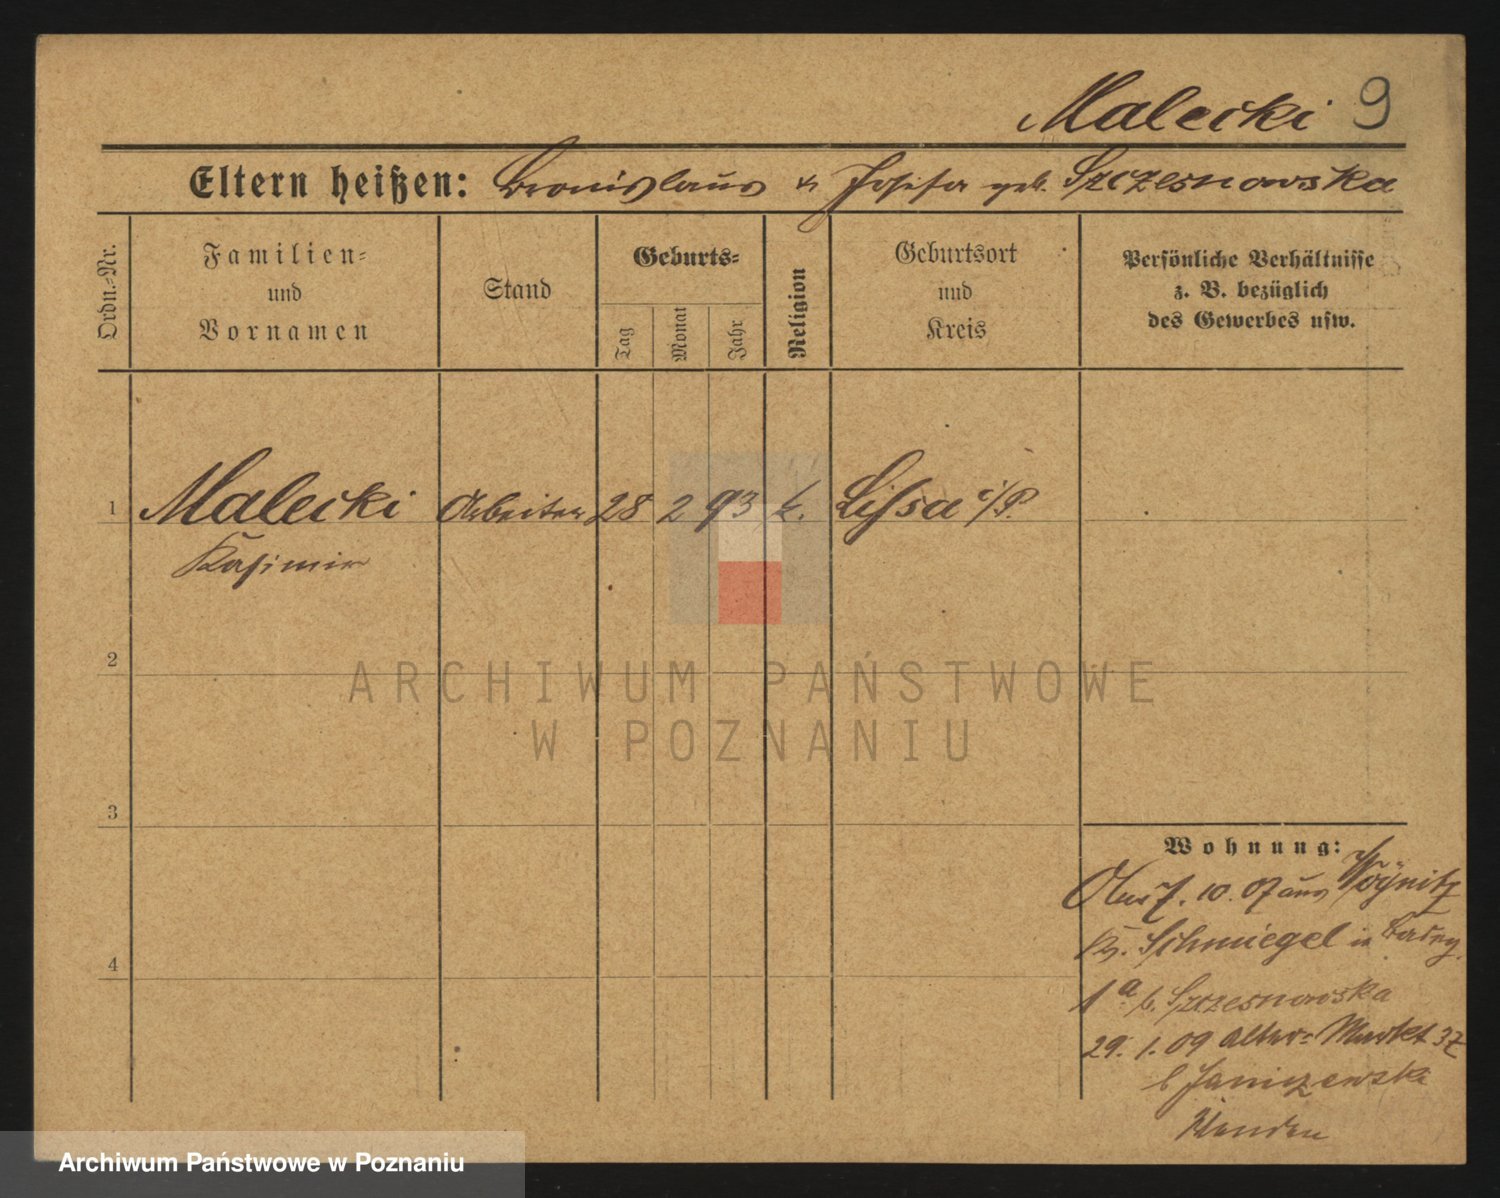 Malecki 9
Eltern heißen: Bronislaus u Josefa geb. Szczesnowska
Ordn.-Nr.
Familien-
und
Vornamen
Stand
Geburts-
Tag
Monat
Jahr
Religion
Geburtsort
und
Kreis
Persönliche Verhältnisse
z. B. bezüglich
des Gewerbes usw.
1 Malecki Arbeiter 28 2 93 k. Lissa i/P.
Kasimir
2
ARCHIWUM PAŃSTWOWE
W POZNANIU
3
Wohnung:
7. 10. 07 aus
Kr. Schmiegel in
1a b. Szczesnowska
29. 1. 09 Alter-Markt 37
b Janiszewski
Archiwum Państwowe w Poznaniu
4